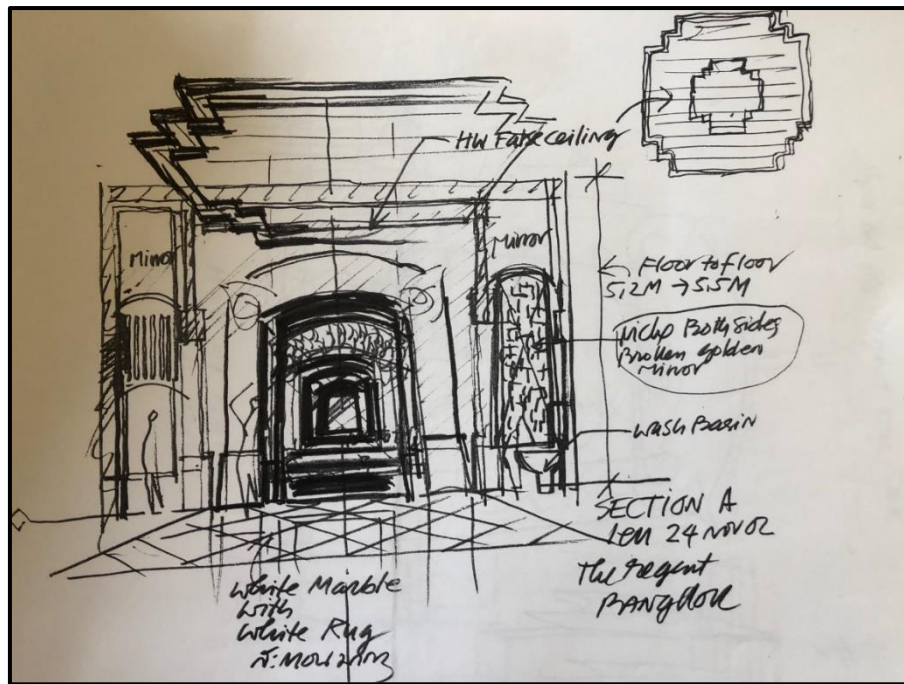 HW False ceiling
Mirror
Mirror
Floor to floor
5,2M → 5,5M
Niche Both sides
Broken golden
Mirror
Wash Basin
SECTION A
24 NOV 02
The Regent
BANGKOK
White Marble
With
White Rug